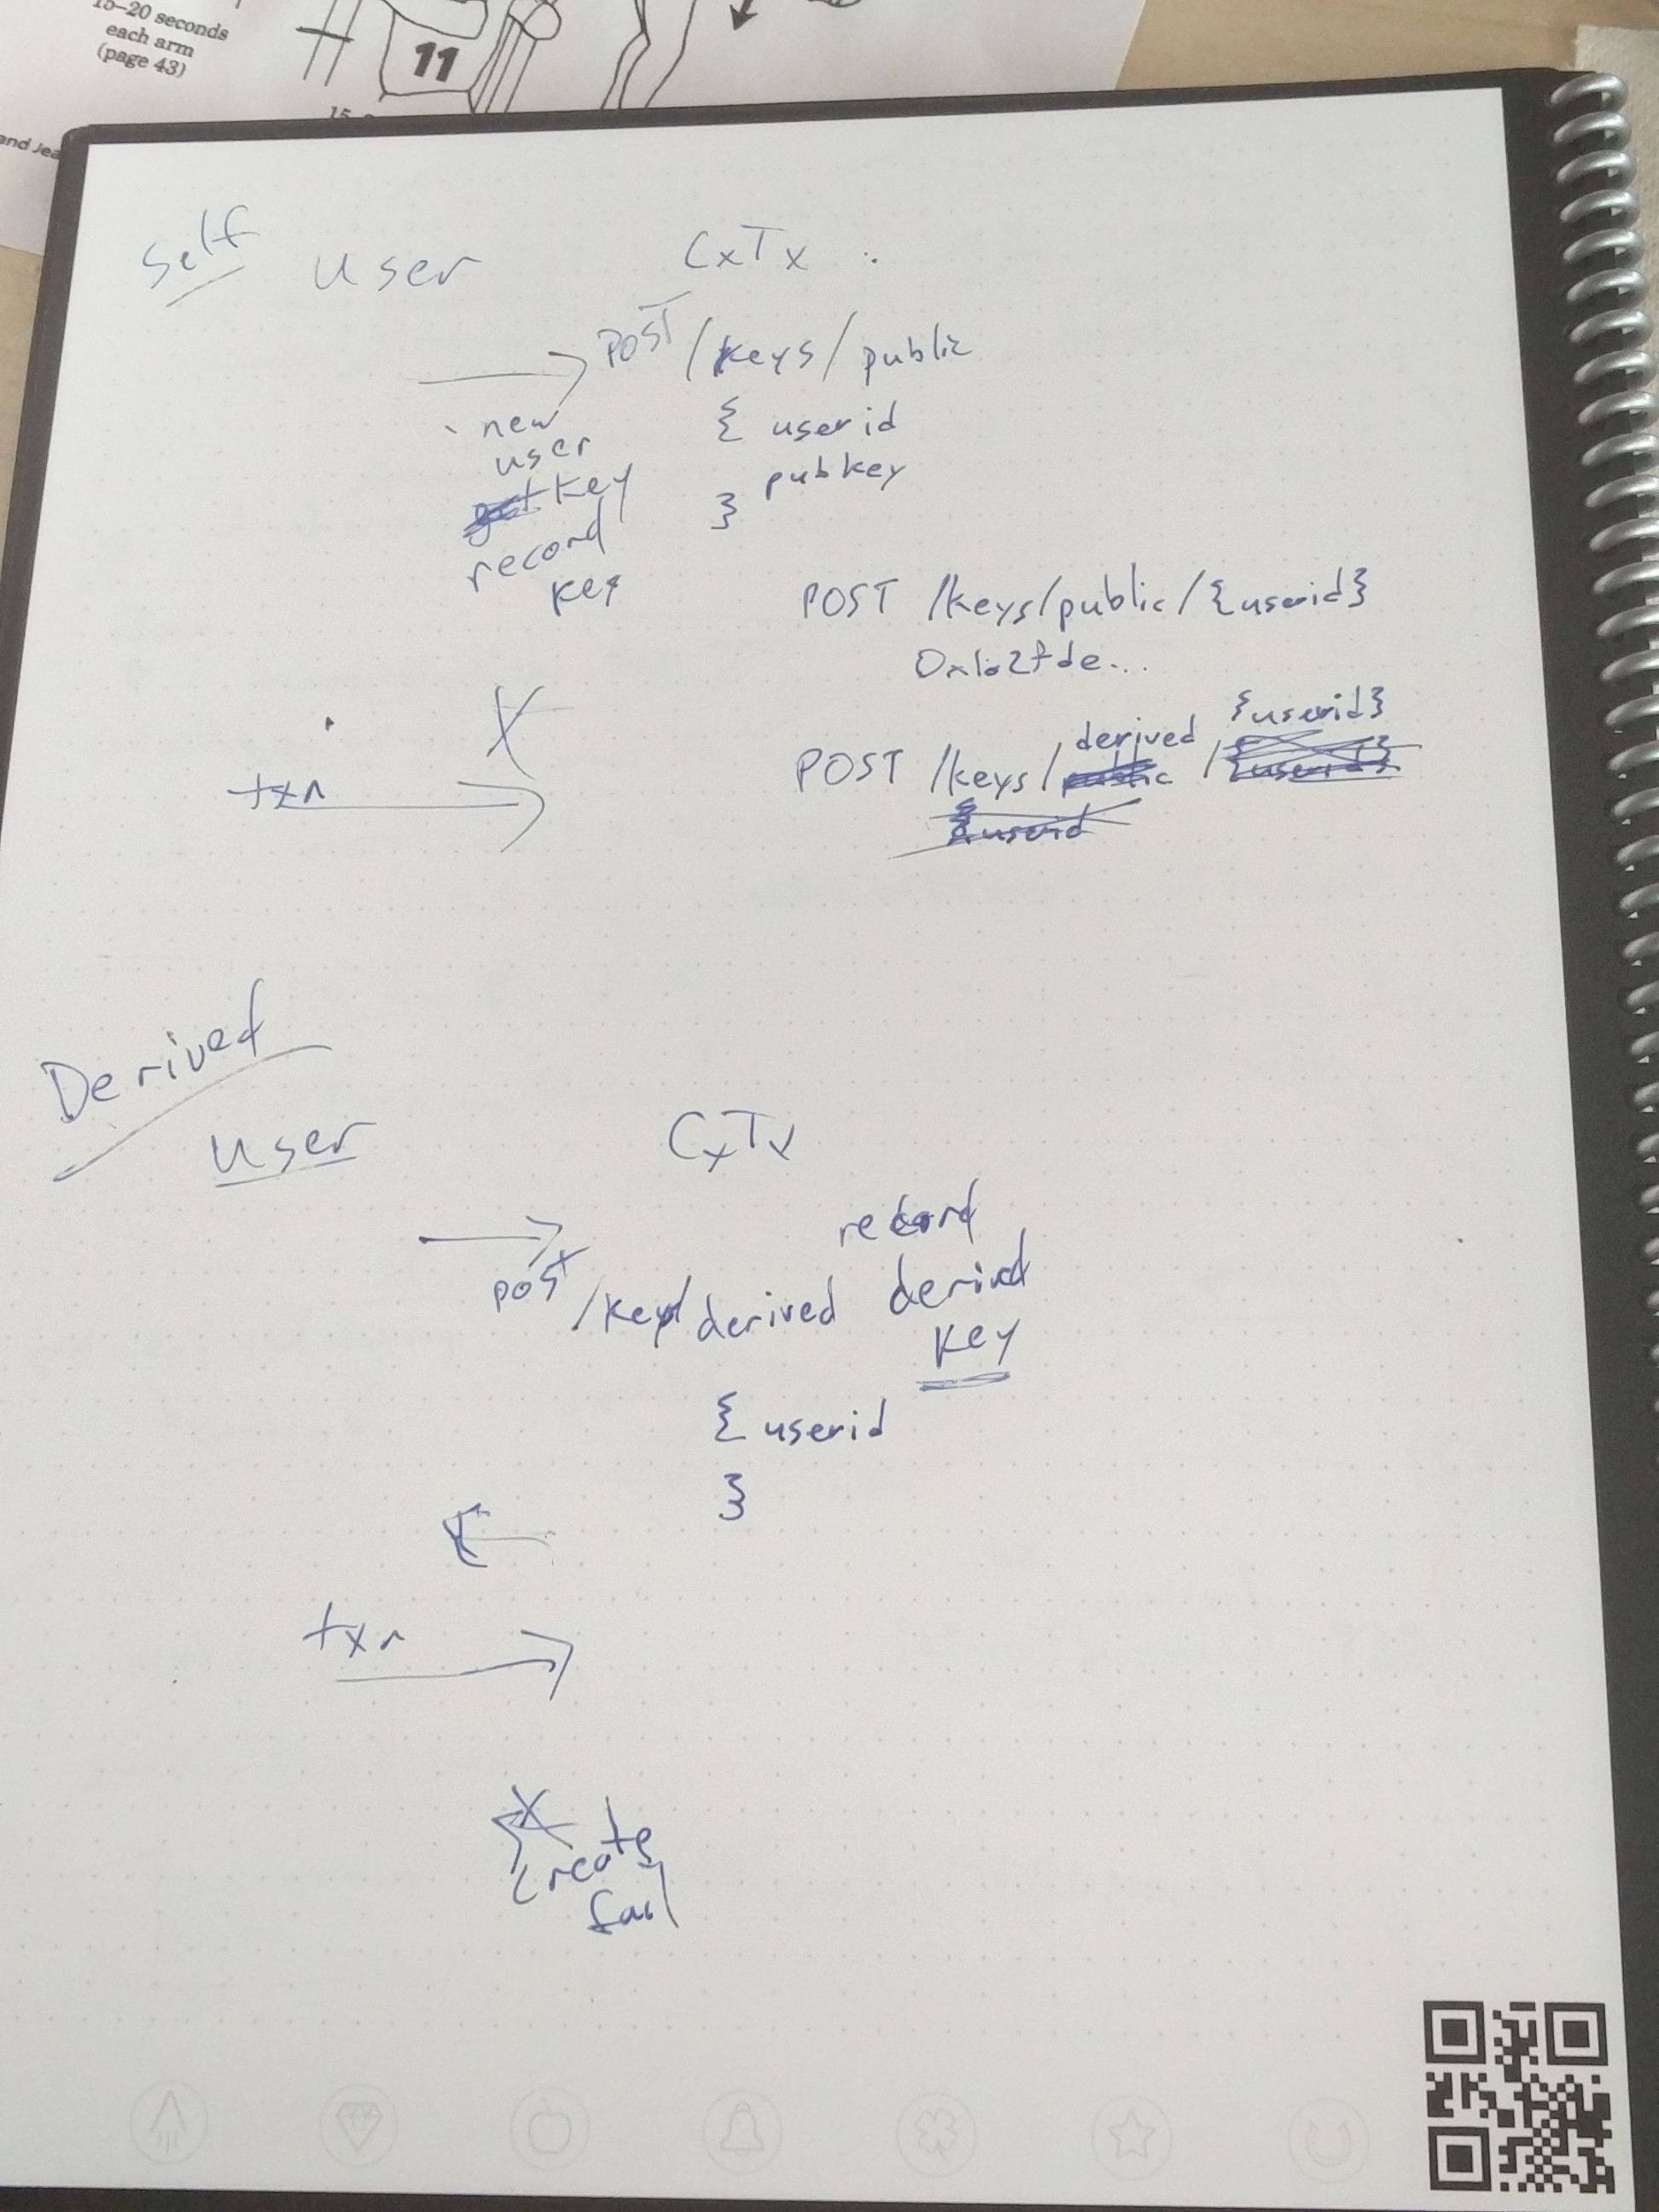 15–20 seconds
each arm
(page 43)
11
and Jea
Self User CxTx
POST /keys/public
new
user
key
record
key
{ userid
pubkey
}
POST /keys/public/{userid}
txn
{userid}
derived
POST /keys/public/{userid}
{userid
Derived
User
CxTx
record
POST /key/derived derived
key
{ userid
}
txn
create
fail